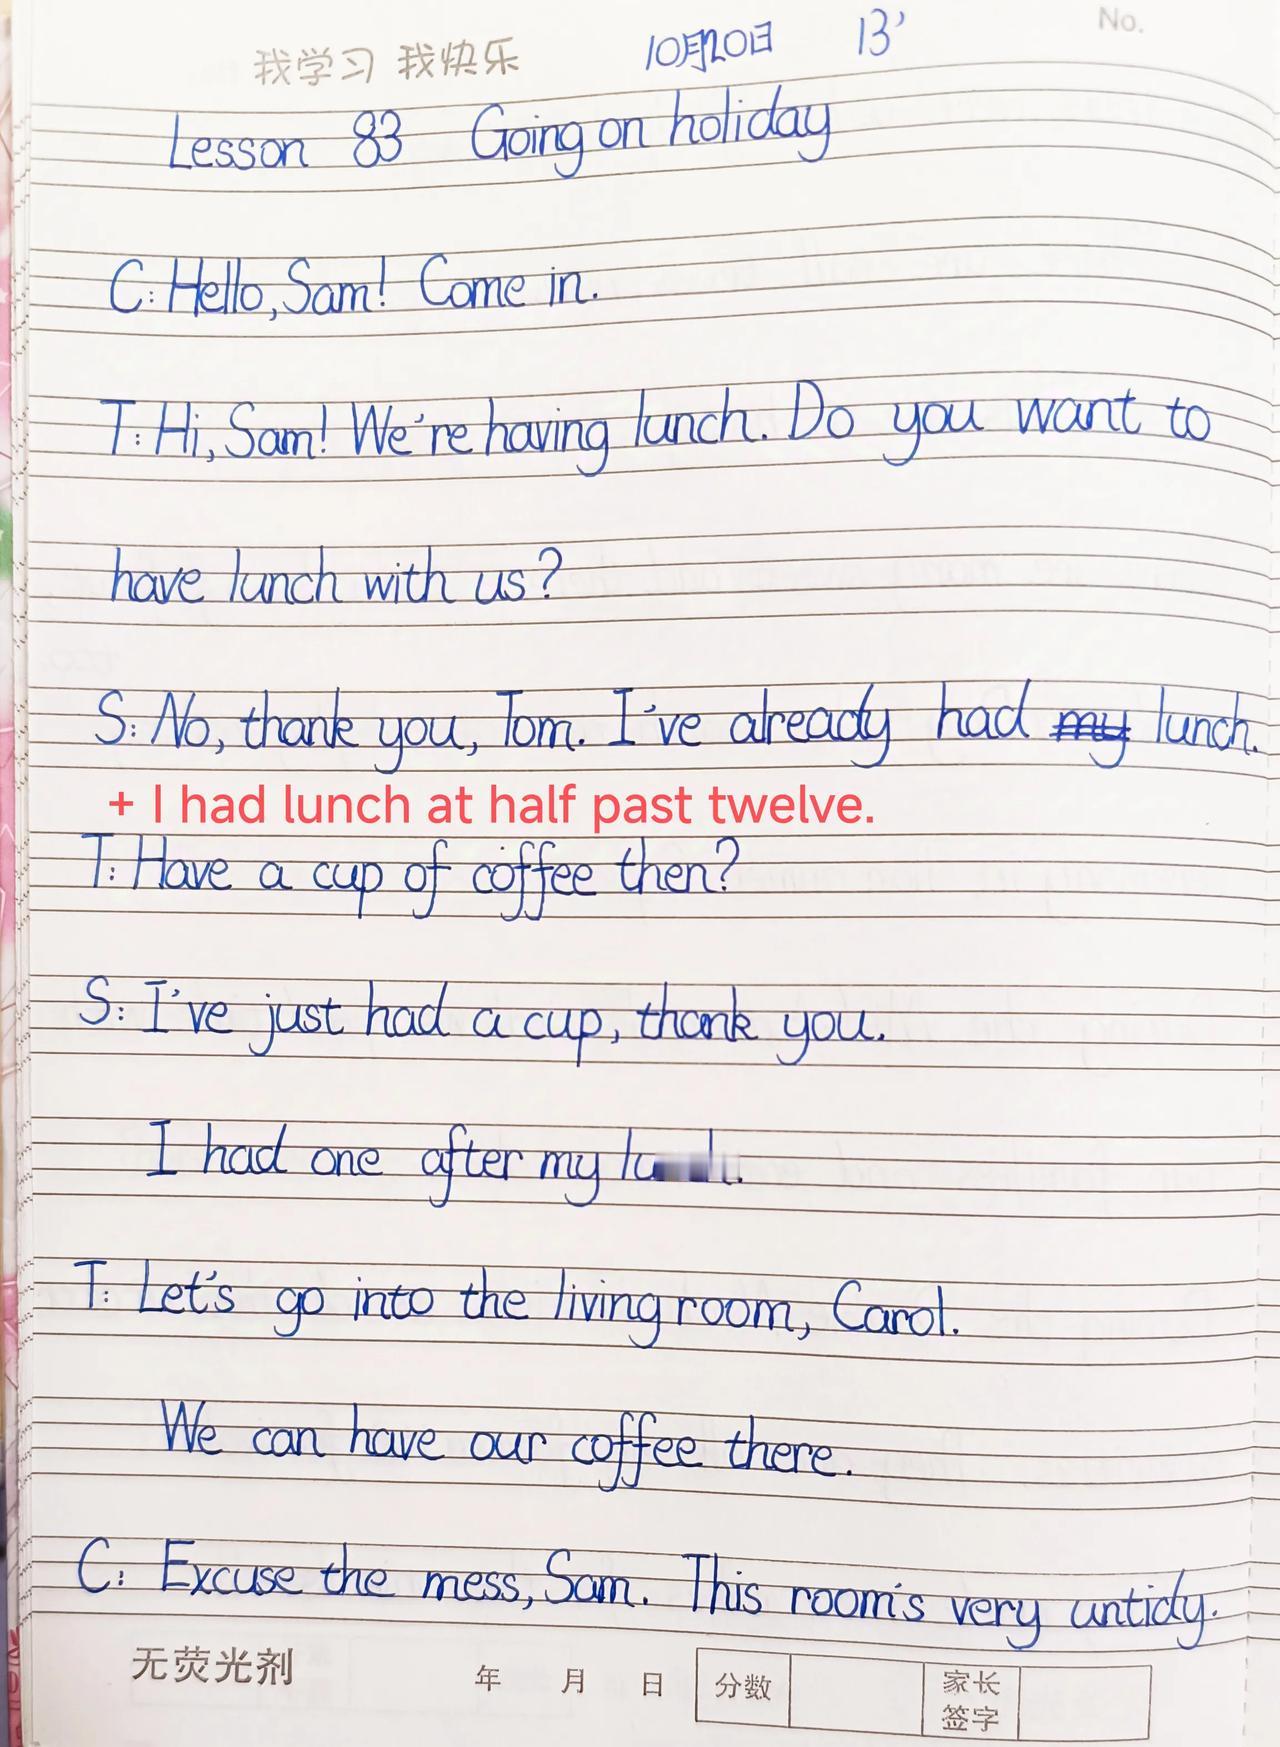 No.
我学习 我快乐 10月20日 13'
Lesson 83 Going on holiday
C: Hello, Sam! Come in.
T: Hi, Sam! We're having lunch. Do you want to
have lunch with us?
S: No, thank you, Tom. I've already had my lunch.
+ I had lunch at half past twelve.
T: Have a cup of coffee then?
S: I've just had a cup, thank you.
I had one after my
T: Let's go into the living room, Carol.
We can have our coffee there.
C: Excuse the mess, Sam. This room's very untidy.
无荧光剂 年 月 日 分数 家长签字